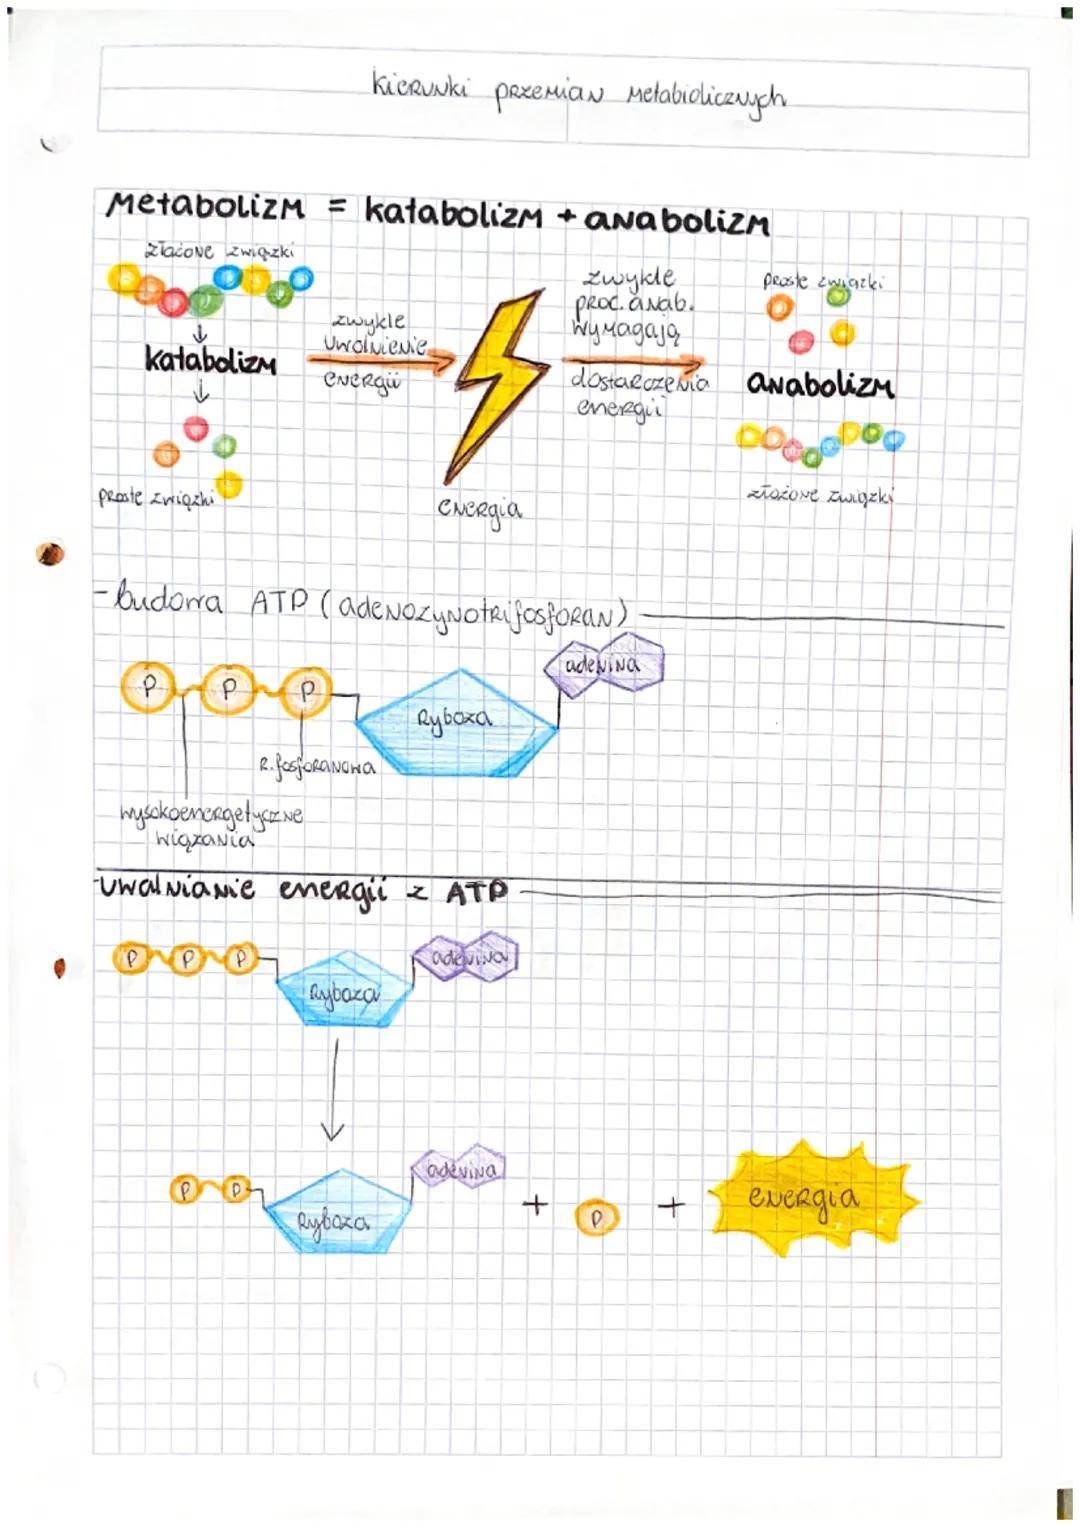 Kierunki przemian Metabiolicznych
Metabolizm = katabolizm + anabolizm
złożone związki
katabolizm
proste związki
zwykle
uwolnienie
energii
energia
zwykle
proc. anab.
wymagają
dostarczenia
energii
proste związki
anabolizm
złożone związki
- budowa ATP (adenozynotrifosforan)
P P P
Ryboza
adenina
R. fosforanowa
wysokoenergetyczne
wiązania
- uwalnianie energii z ATP
P P P
Ryboza
adenina
P P
Ryboza
adenina
+ P + energia